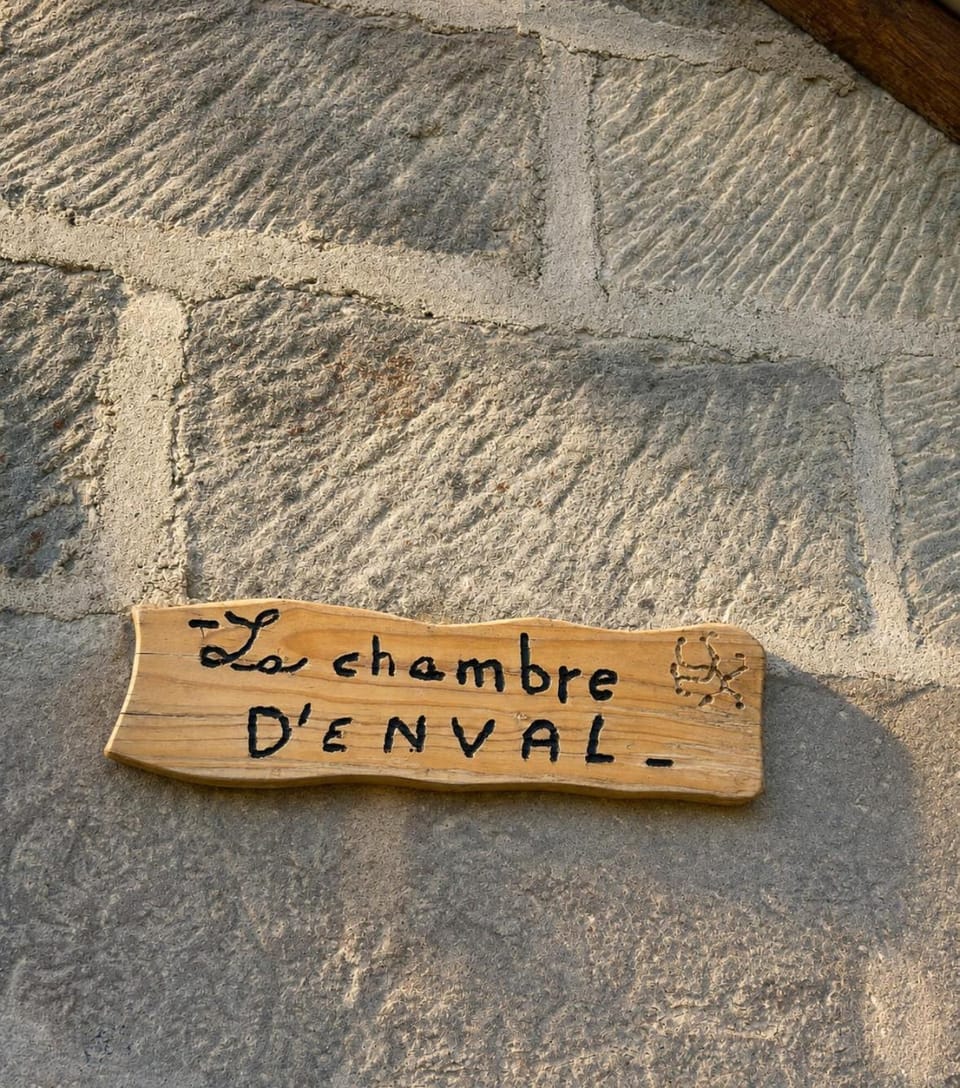 -La chambre
D'ENVAL_